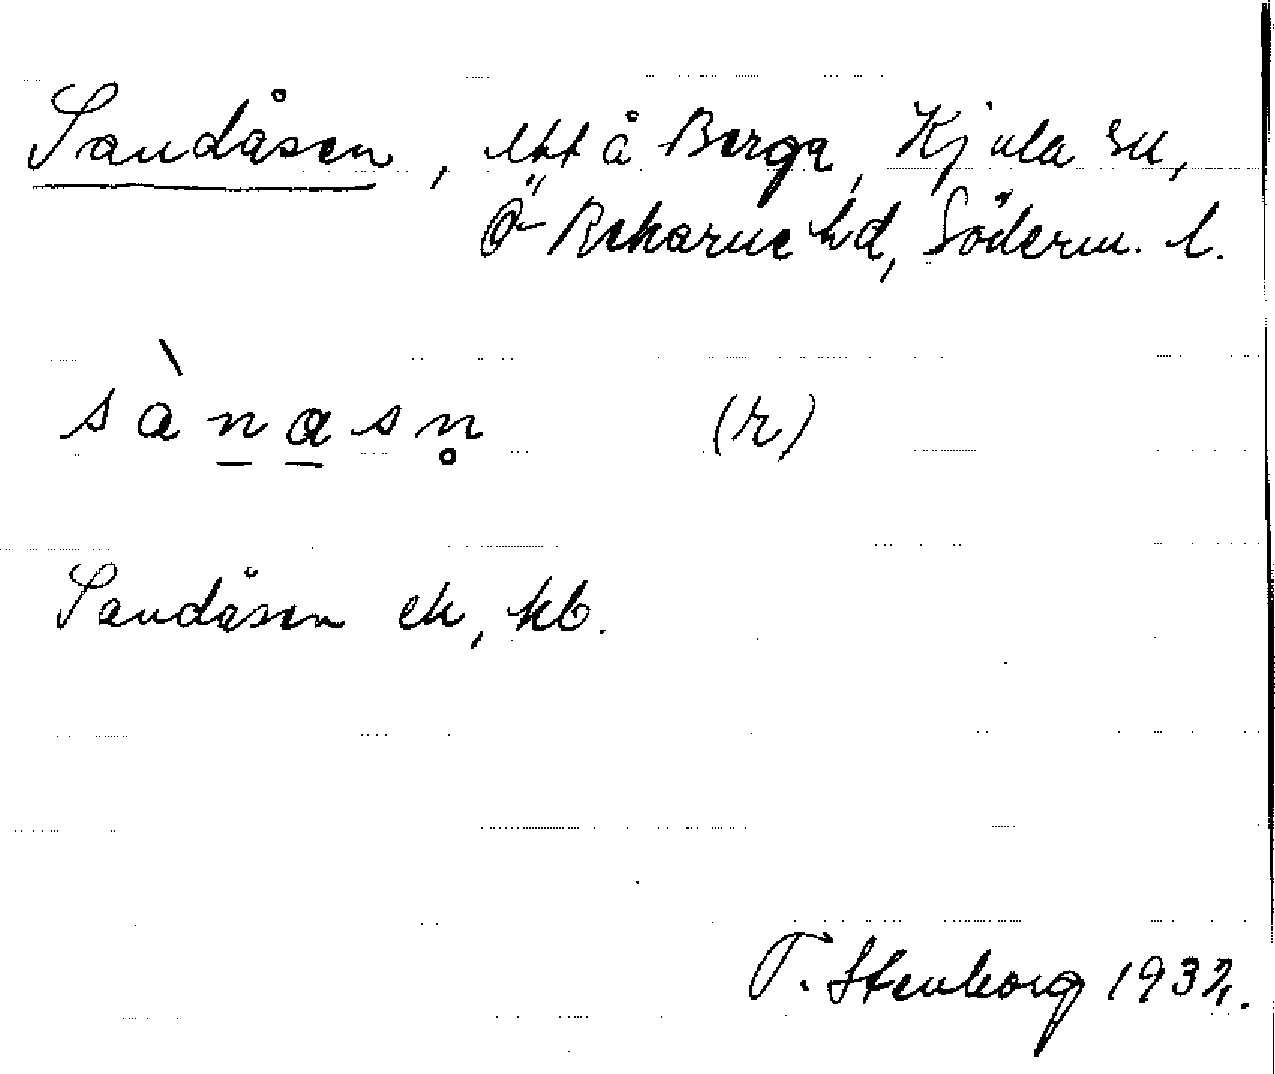 Sandåsen, lht å Berga, Kjula sn,
Ö-Rekarne hd, Söderm. l.
sànasn̥ (r)
Sandåsen ek, kb.
T. Stenborg